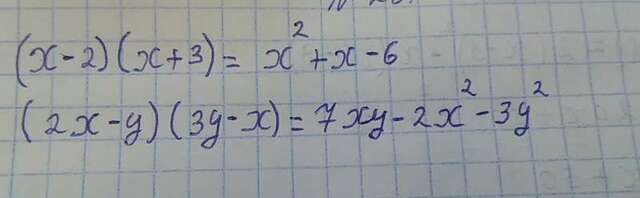 (x-2)(x+3) = x² + x - 6
(2x-y)(3y-x) = 7xy - 2x² - 3y²